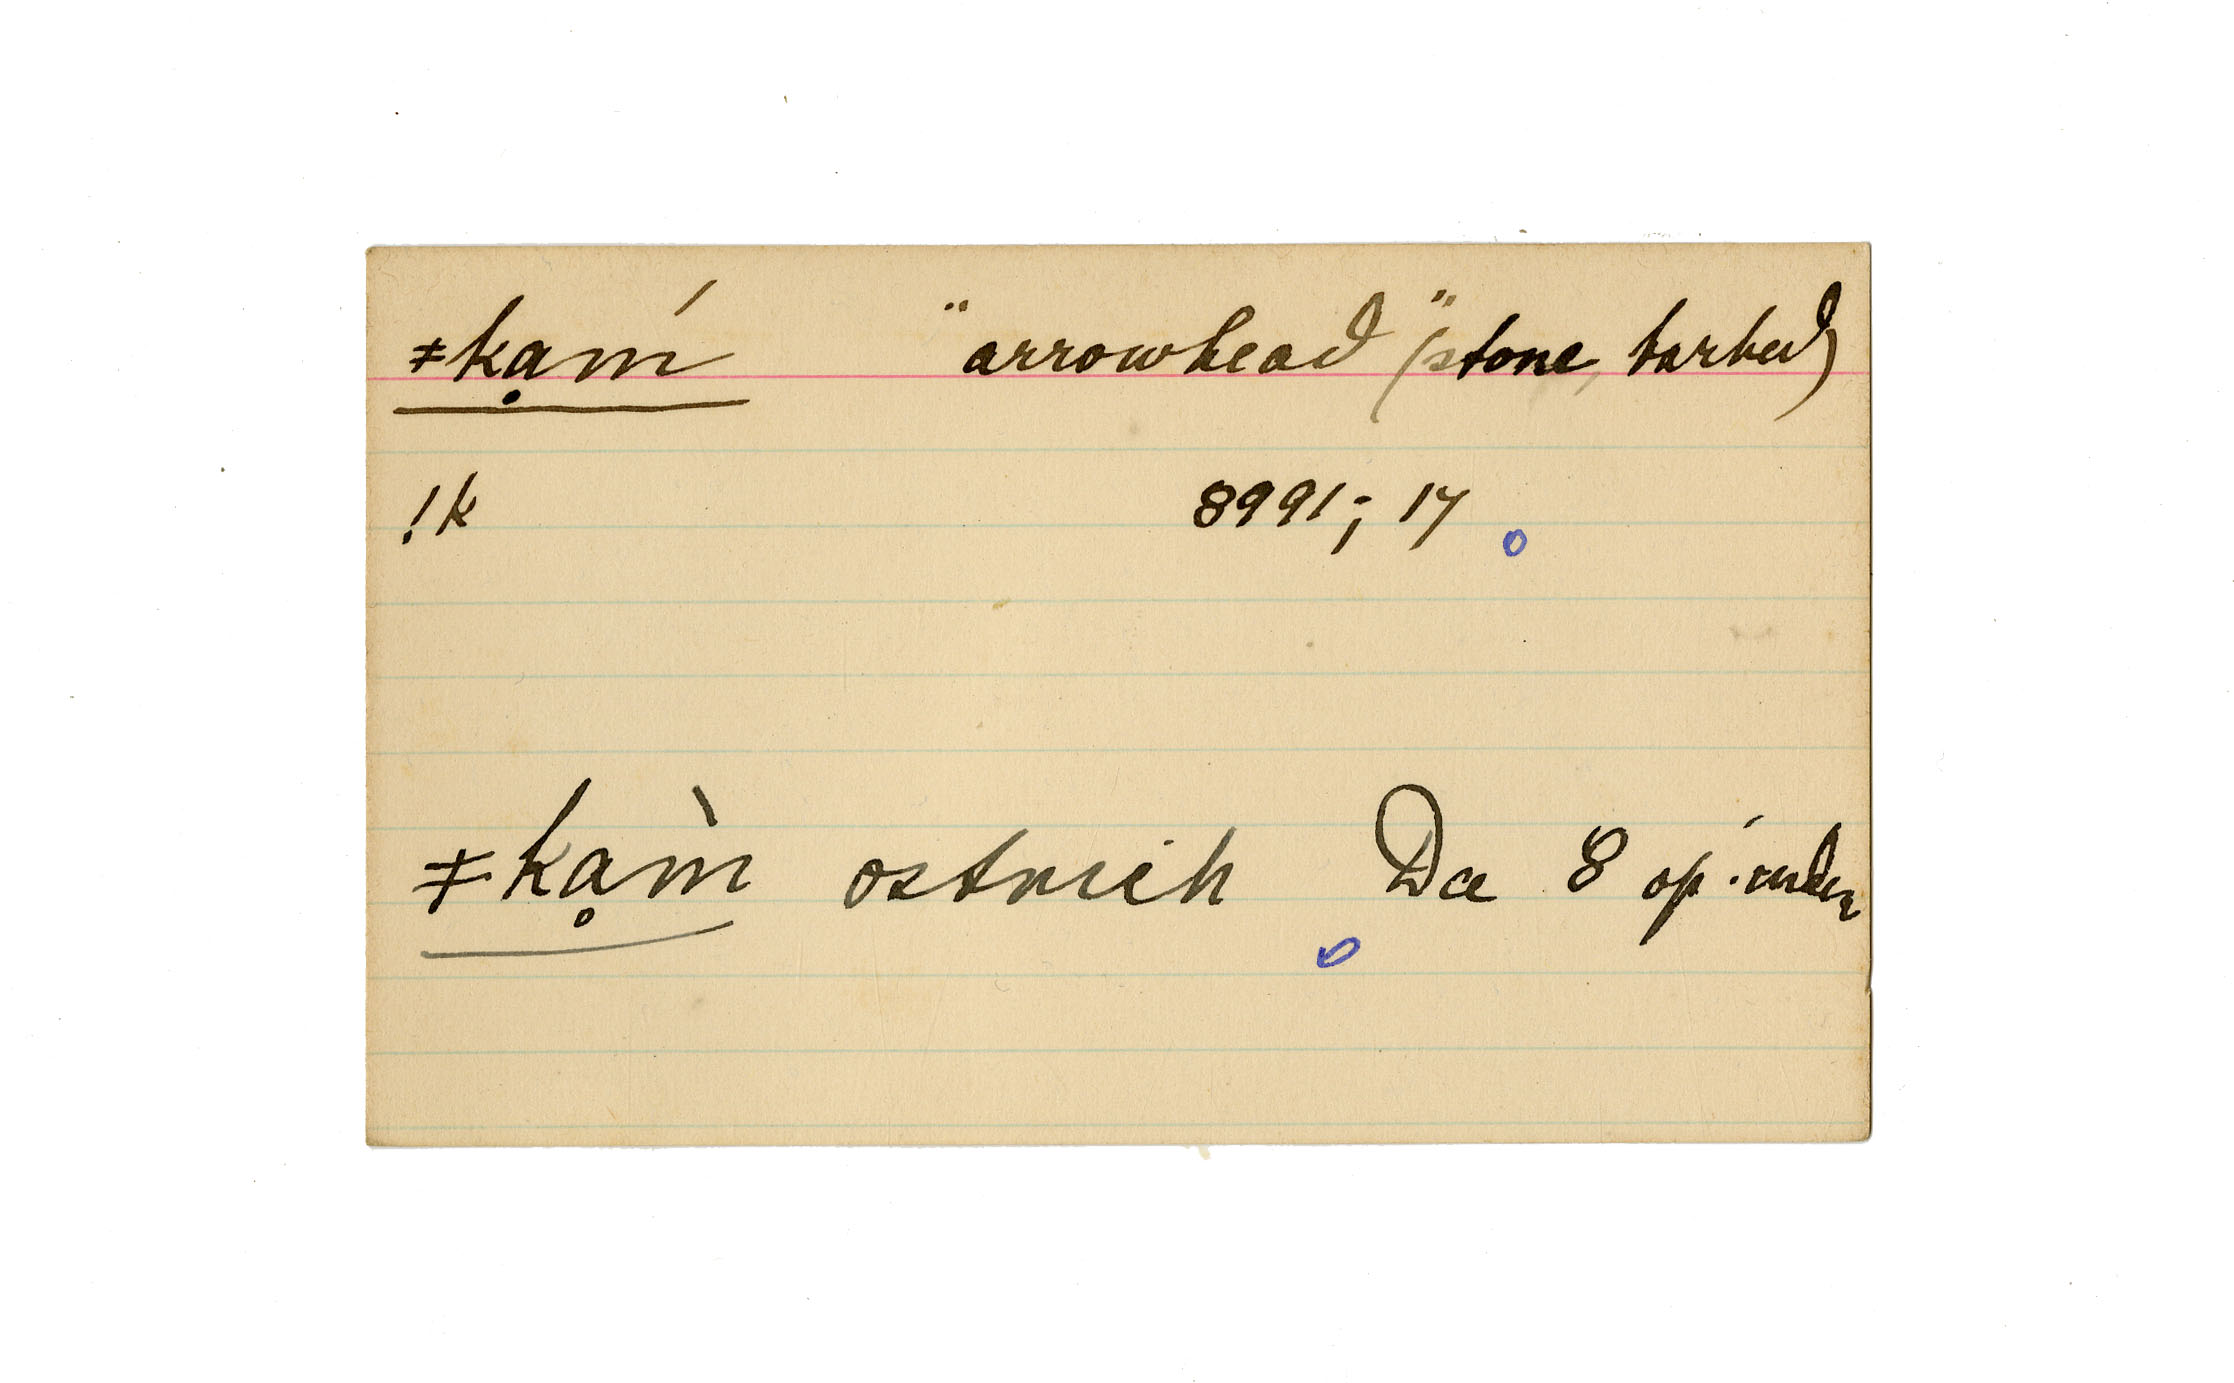 ǂkạḿ "arrowhead" (stone, barbed)
!k 8991; 17
ǂkạm̀ ostrich Da 8 op.